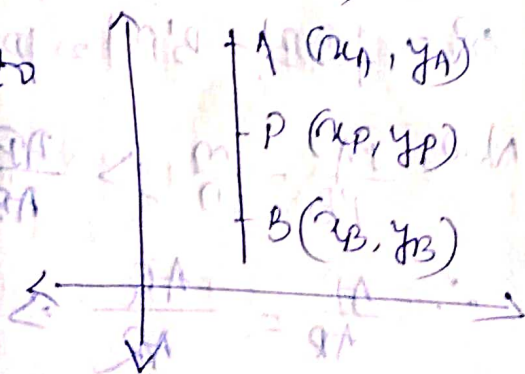 A (x_A, y_A)
P (x_P, y_P)
B (x_B, y_B)